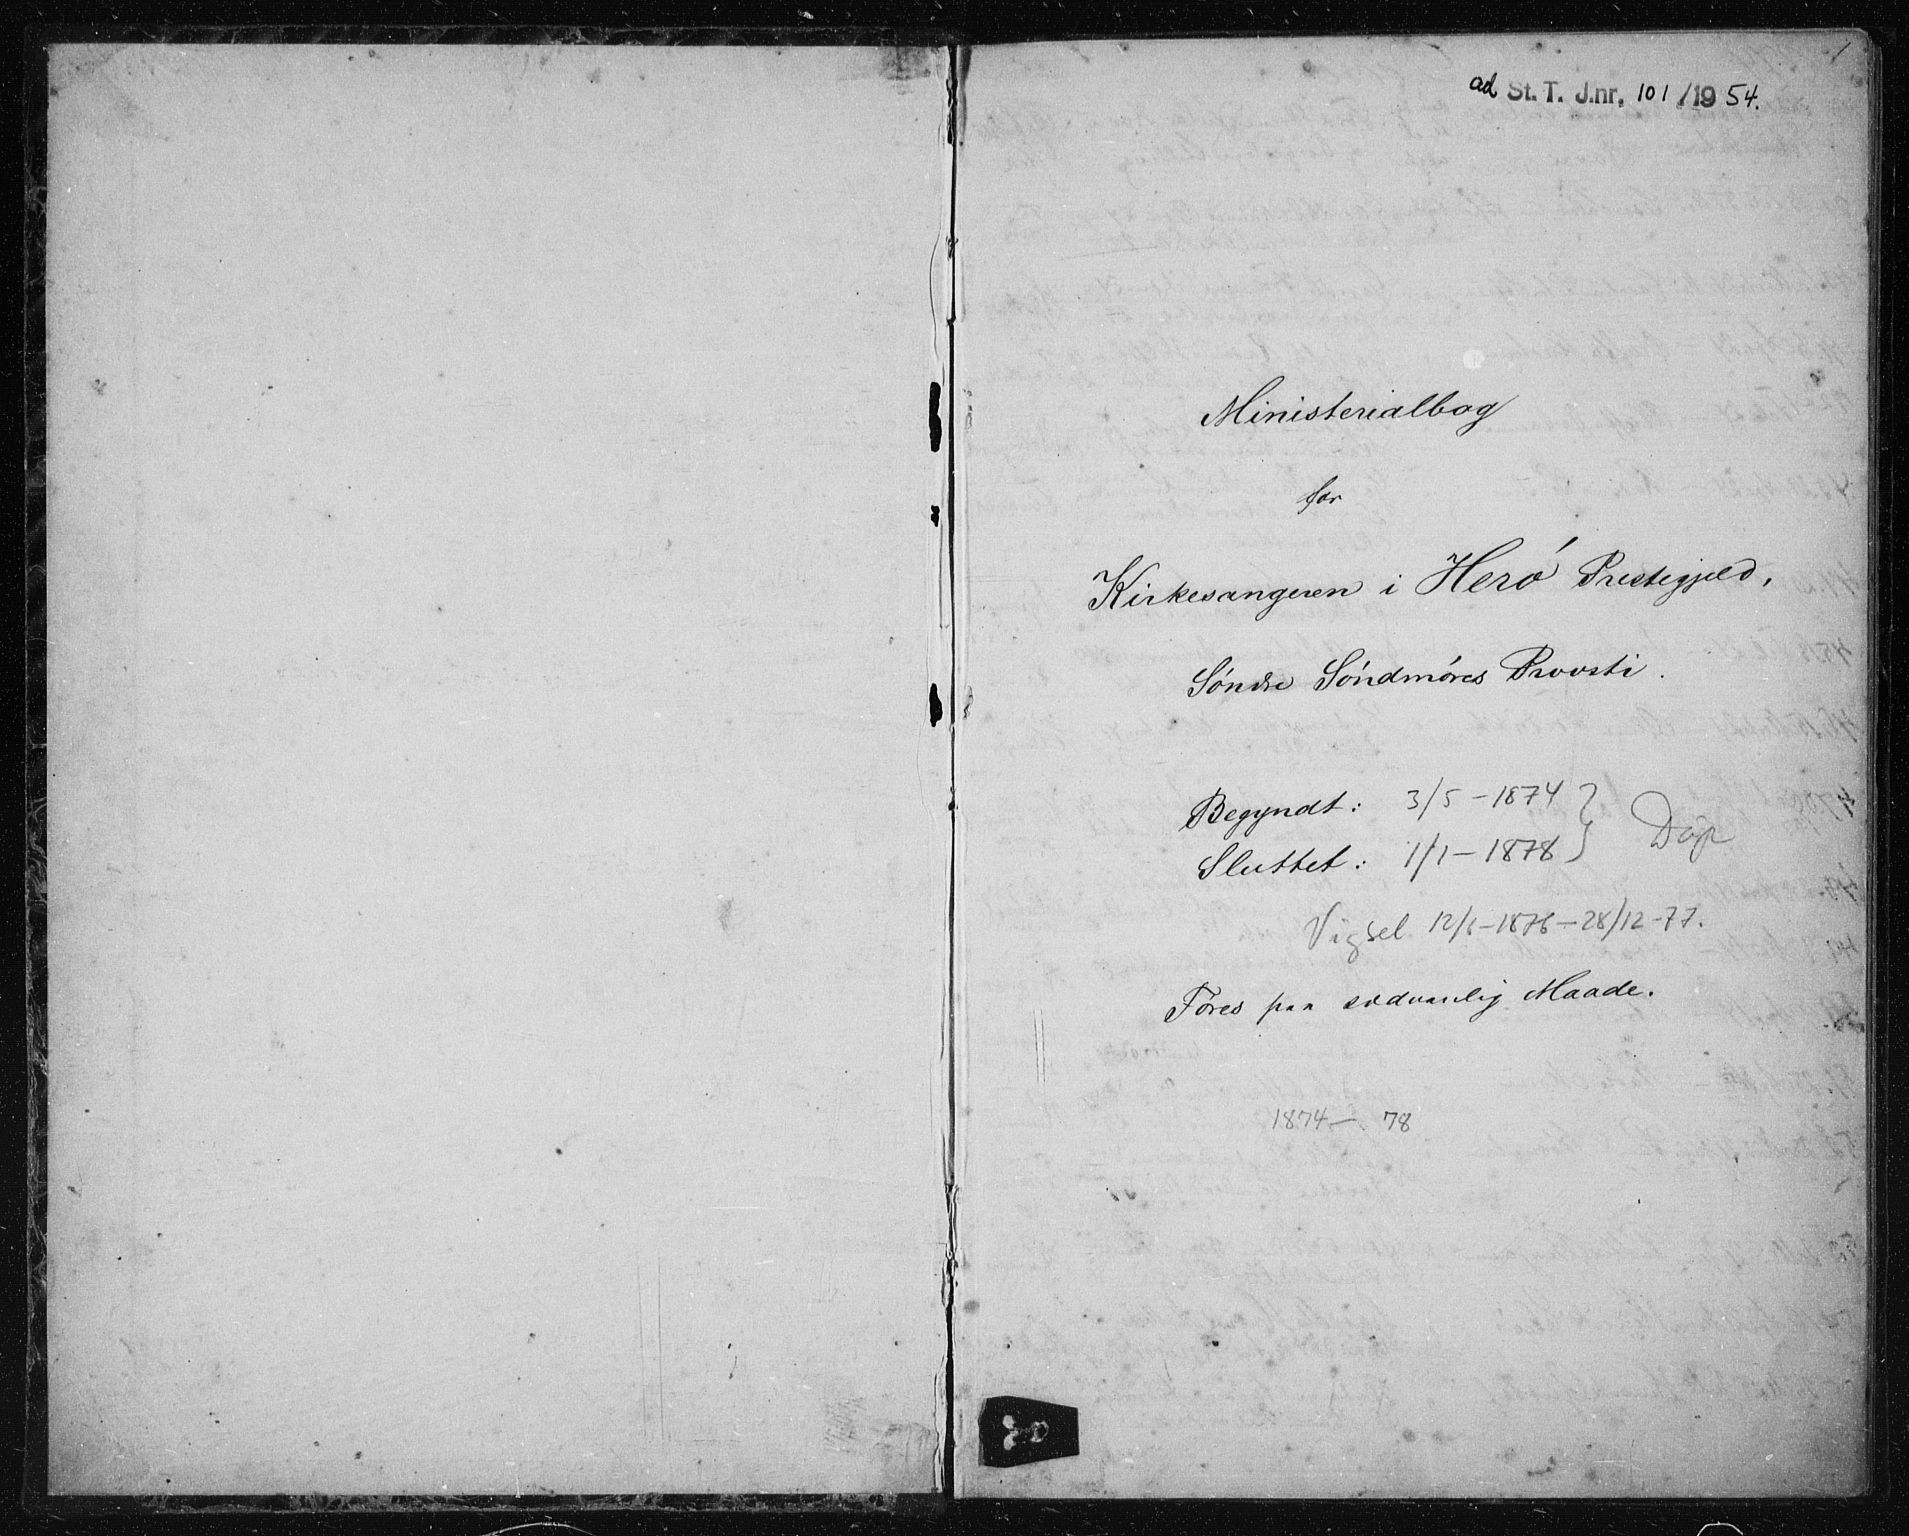 1
ad St. T. J.nr. 101/1954.
Ministerialbog
for
Kirkesangeren i Herö Prestegjeld.
Søndre Söndmöres Provsti.
Begyndt: 3/5 - 1874 } Dåp
Sluttet: 1/1 - 1878
Vigsel 12/6 - 1876 - 28/12 - 77.
Föres paa sædvanlig Maade.
1874 - 78